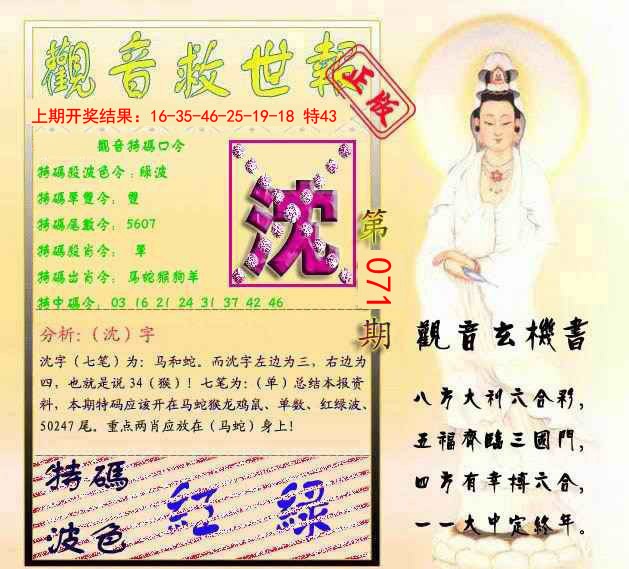 觀音救世報
正版
上期开奖结果：16-35-46-25-19-18 特43
觀音特碼口令
特碼段波色令：綠波
特碼單雙令： 雙
特碼尾數令： 5607
特碼段肖令： 單
特碼出肖令： 马蛇猴狗羊
特中碼令： 03 16 21 24 31 37 42 46
沈
第
071
期
分析:（沈）字
沈字（七笔）为: 马和蛇。而沈字左边为三，右边为
四，也就是说34（猴）！七笔为:（单）总结本报资
料，本期特码应该开在马蛇猴龙鸡鼠、单数、红绿波、
50247尾。重点两肖应放在（马蛇）身上！
特碼
波色
紅 綠
觀音玄機書
八方大利六合彩，
五福齊臨三國門，
四方有幸搏六合，
一一大中定終年。